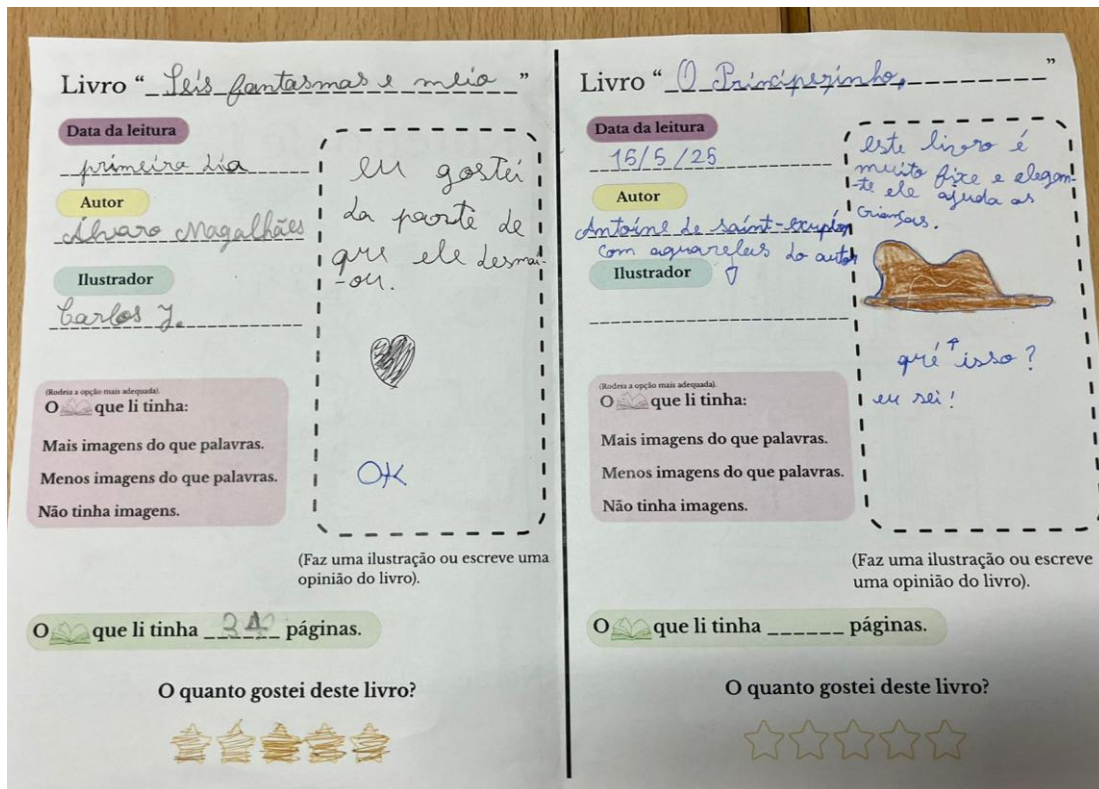 Livro “Seis fantasmas e meio”
Data da leitura
primeiro dia
Autor
Álvaro Magalhães
Ilustrador
Carlos J.
eu gostei
da parte de
que ele desmai-
-ou.
OK
(Rodeia a opção mais adequada).
O que li tinha:
Mais imagens do que palavras.
Menos imagens do que palavras.
Não tinha imagens.
(Faz uma ilustração ou escreve uma
opinião do livro).
O que li tinha 34 páginas.
O quanto gostei deste livro?
Livro “O Principezinho,”
Data da leitura
15/5/25
Autor
Antoine de saint-exupéry
com aguarelas do autor
Ilustrador
este livro é
muito fixe e elegan-
-te ele ajuda as
crianças.
qué isso?
eu sei!
(Rodeia a opção mais adequada).
O que li tinha:
Mais imagens do que palavras.
Menos imagens do que palavras.
Não tinha imagens.
(Faz uma ilustração ou escreve
uma opinião do livro).
O que li tinha ______ páginas.
O quanto gostei deste livro?